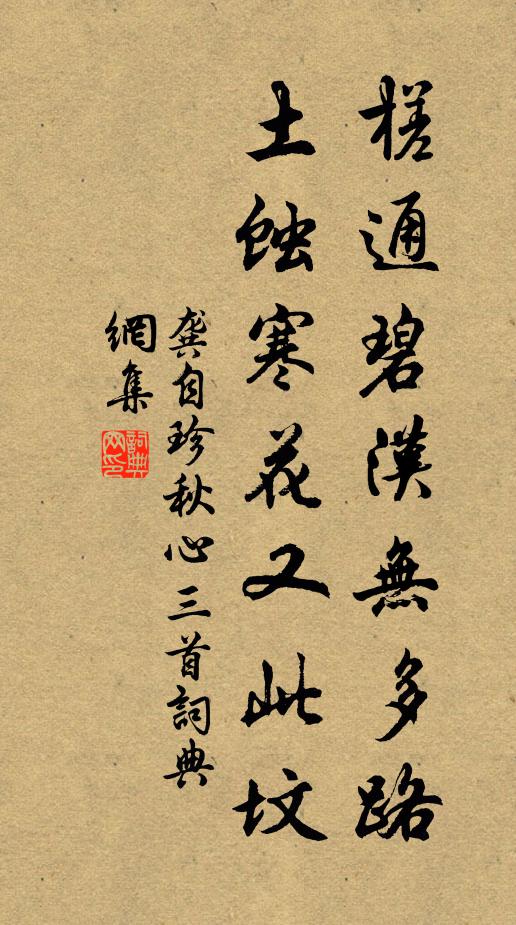 槎通碧漢無多路
土蝕寒花又此墳
龔自珍秋心三首詞典
網集
詞典網印